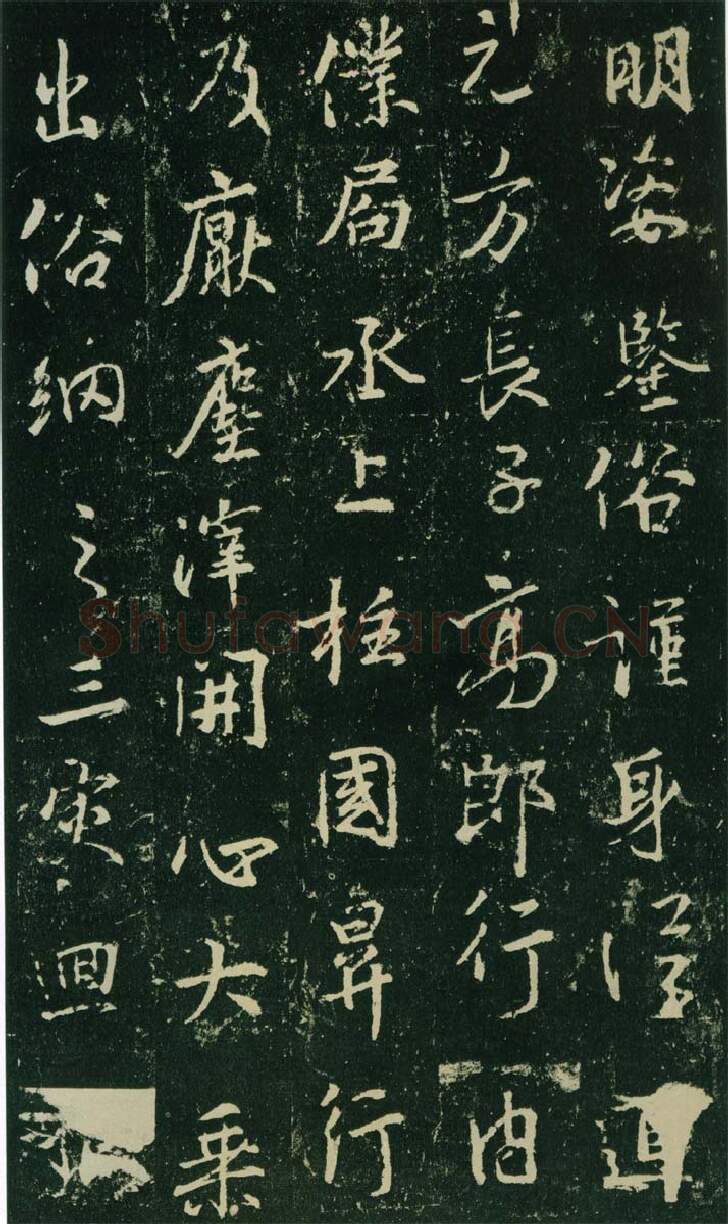 明姿鑒俗謹身淂道
元方長子高郎行內
僕局丞上柱國昇行
及厭塵滓開心大乘
出俗納之三寅回
Shufawang.CN